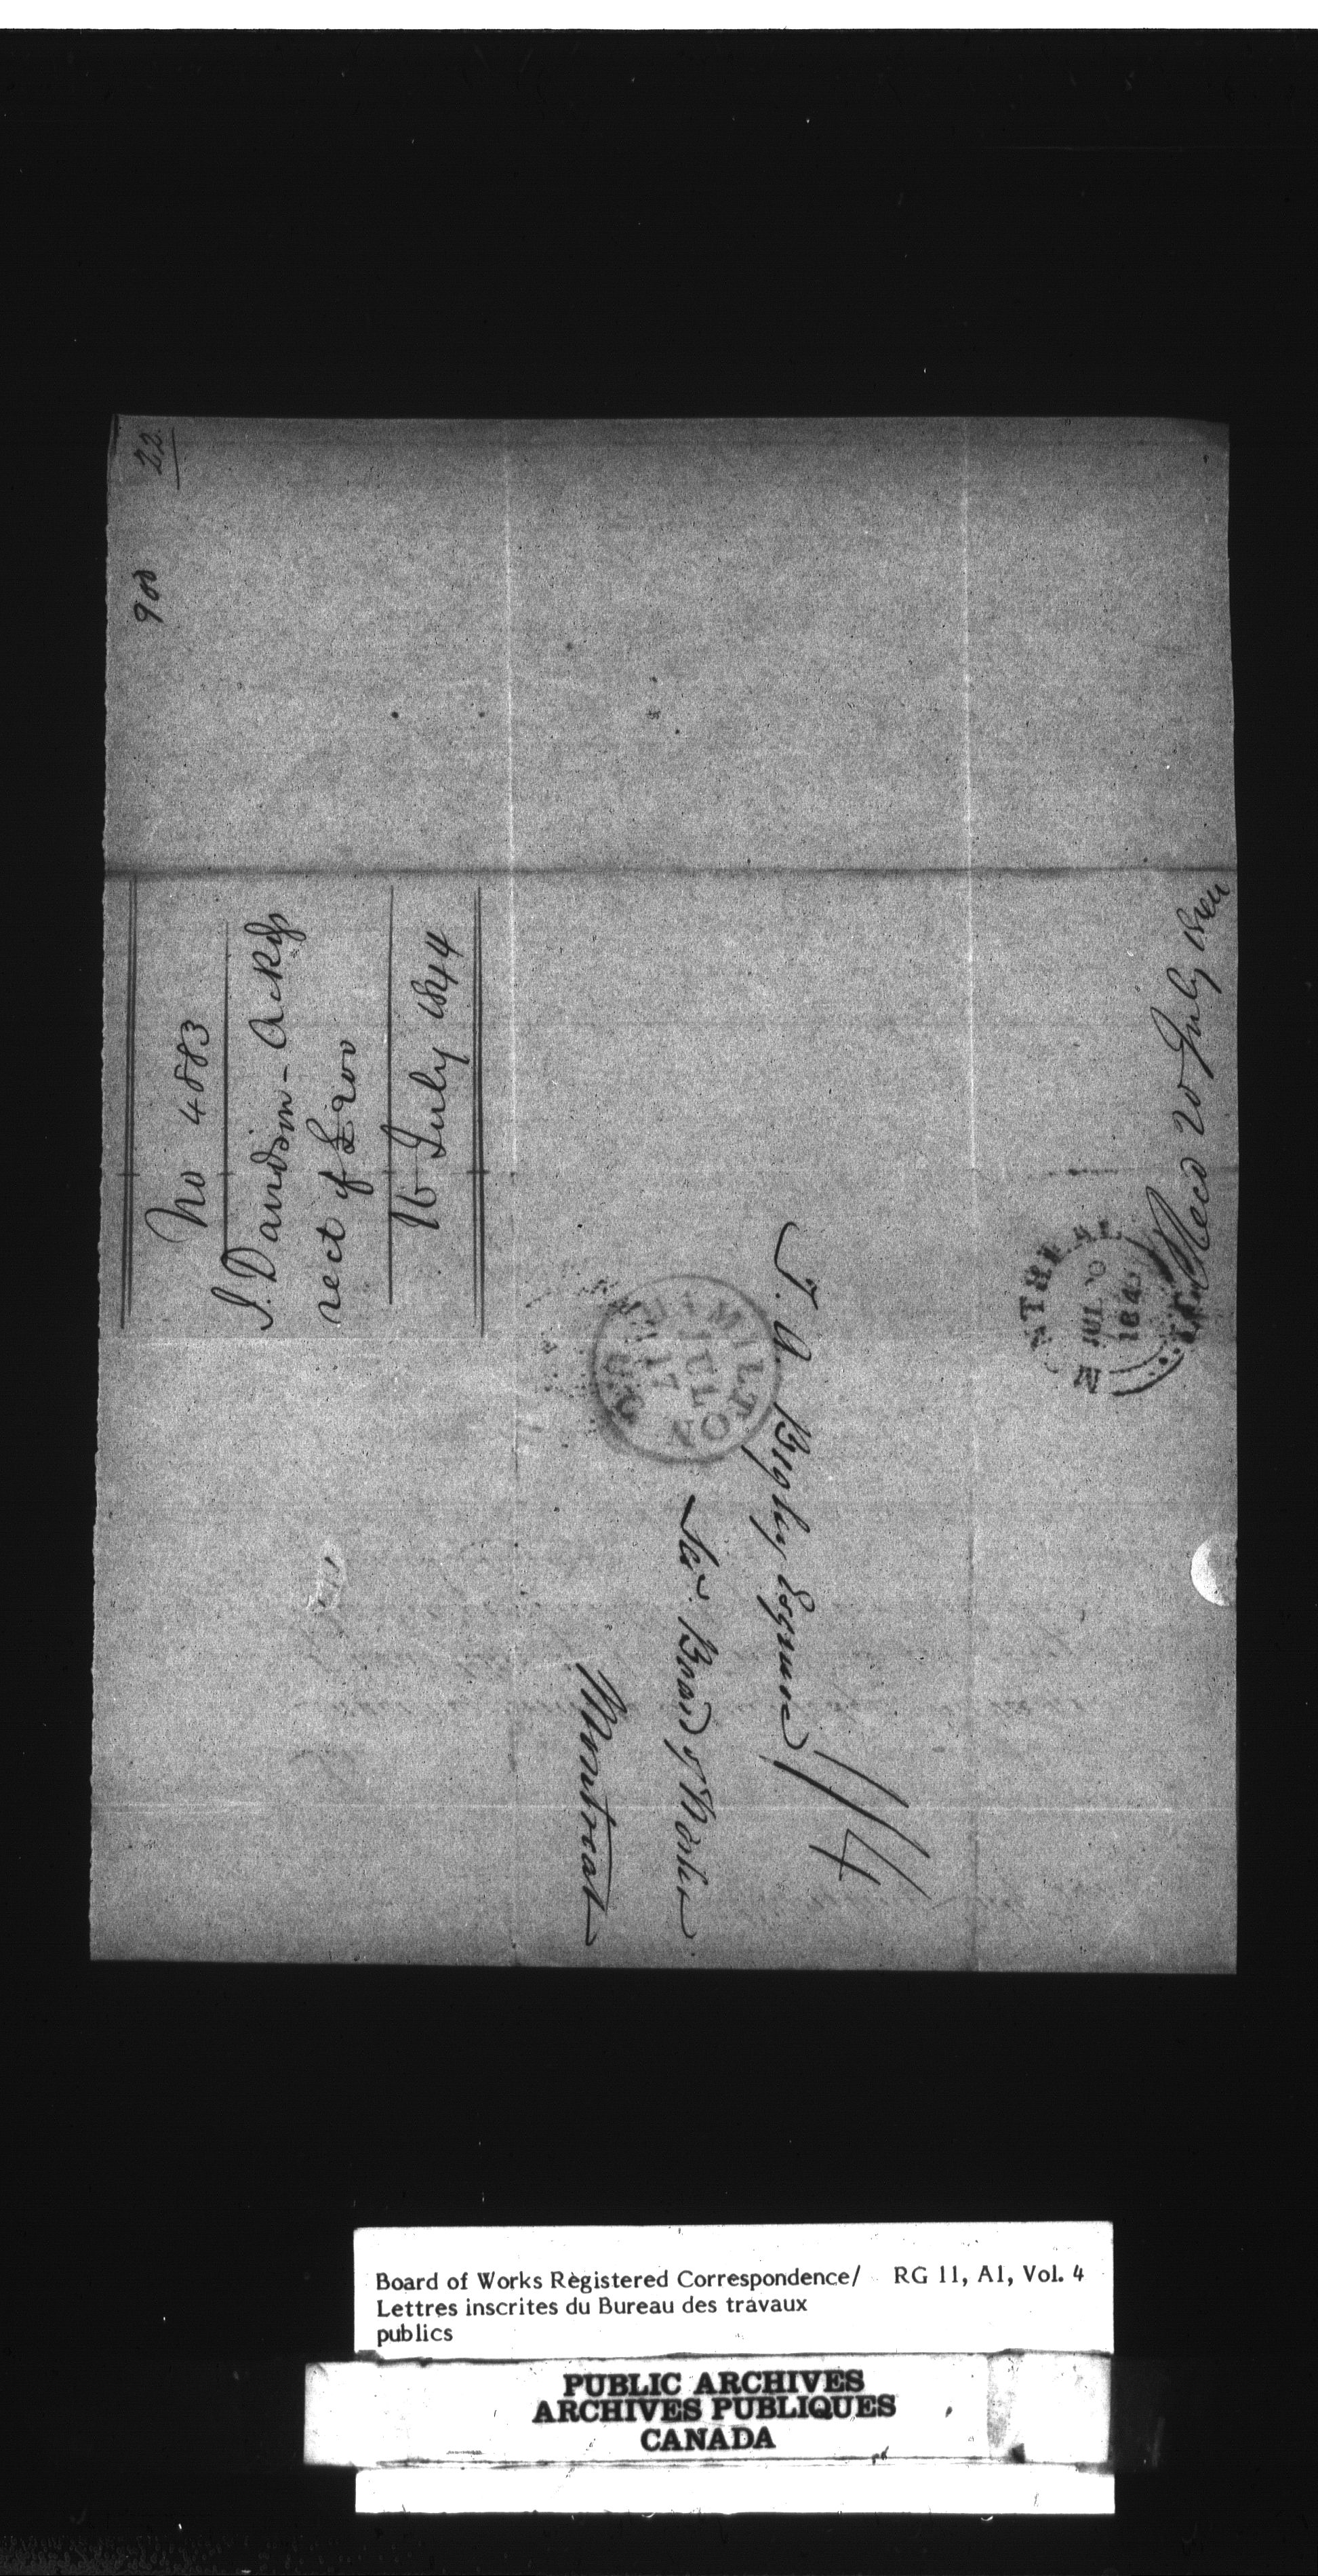 22
900
No 4883
J. Davidson - Ackgs
rect of £200
16 July 1844
HAMILTON
JUL
17
T. A. Begley Esquire
Sec. Board of Works
Montreal
1/4
MONTREAL
JUL 20
184
Recd 20 July 1844
Board of Works Registered Correspondence/ RG 11, A1, Vol. 4
Lettres inscrites du Bureau des travaux
publics
PUBLIC ARCHIVES
ARCHIVES PUBLIQUES
CANADA